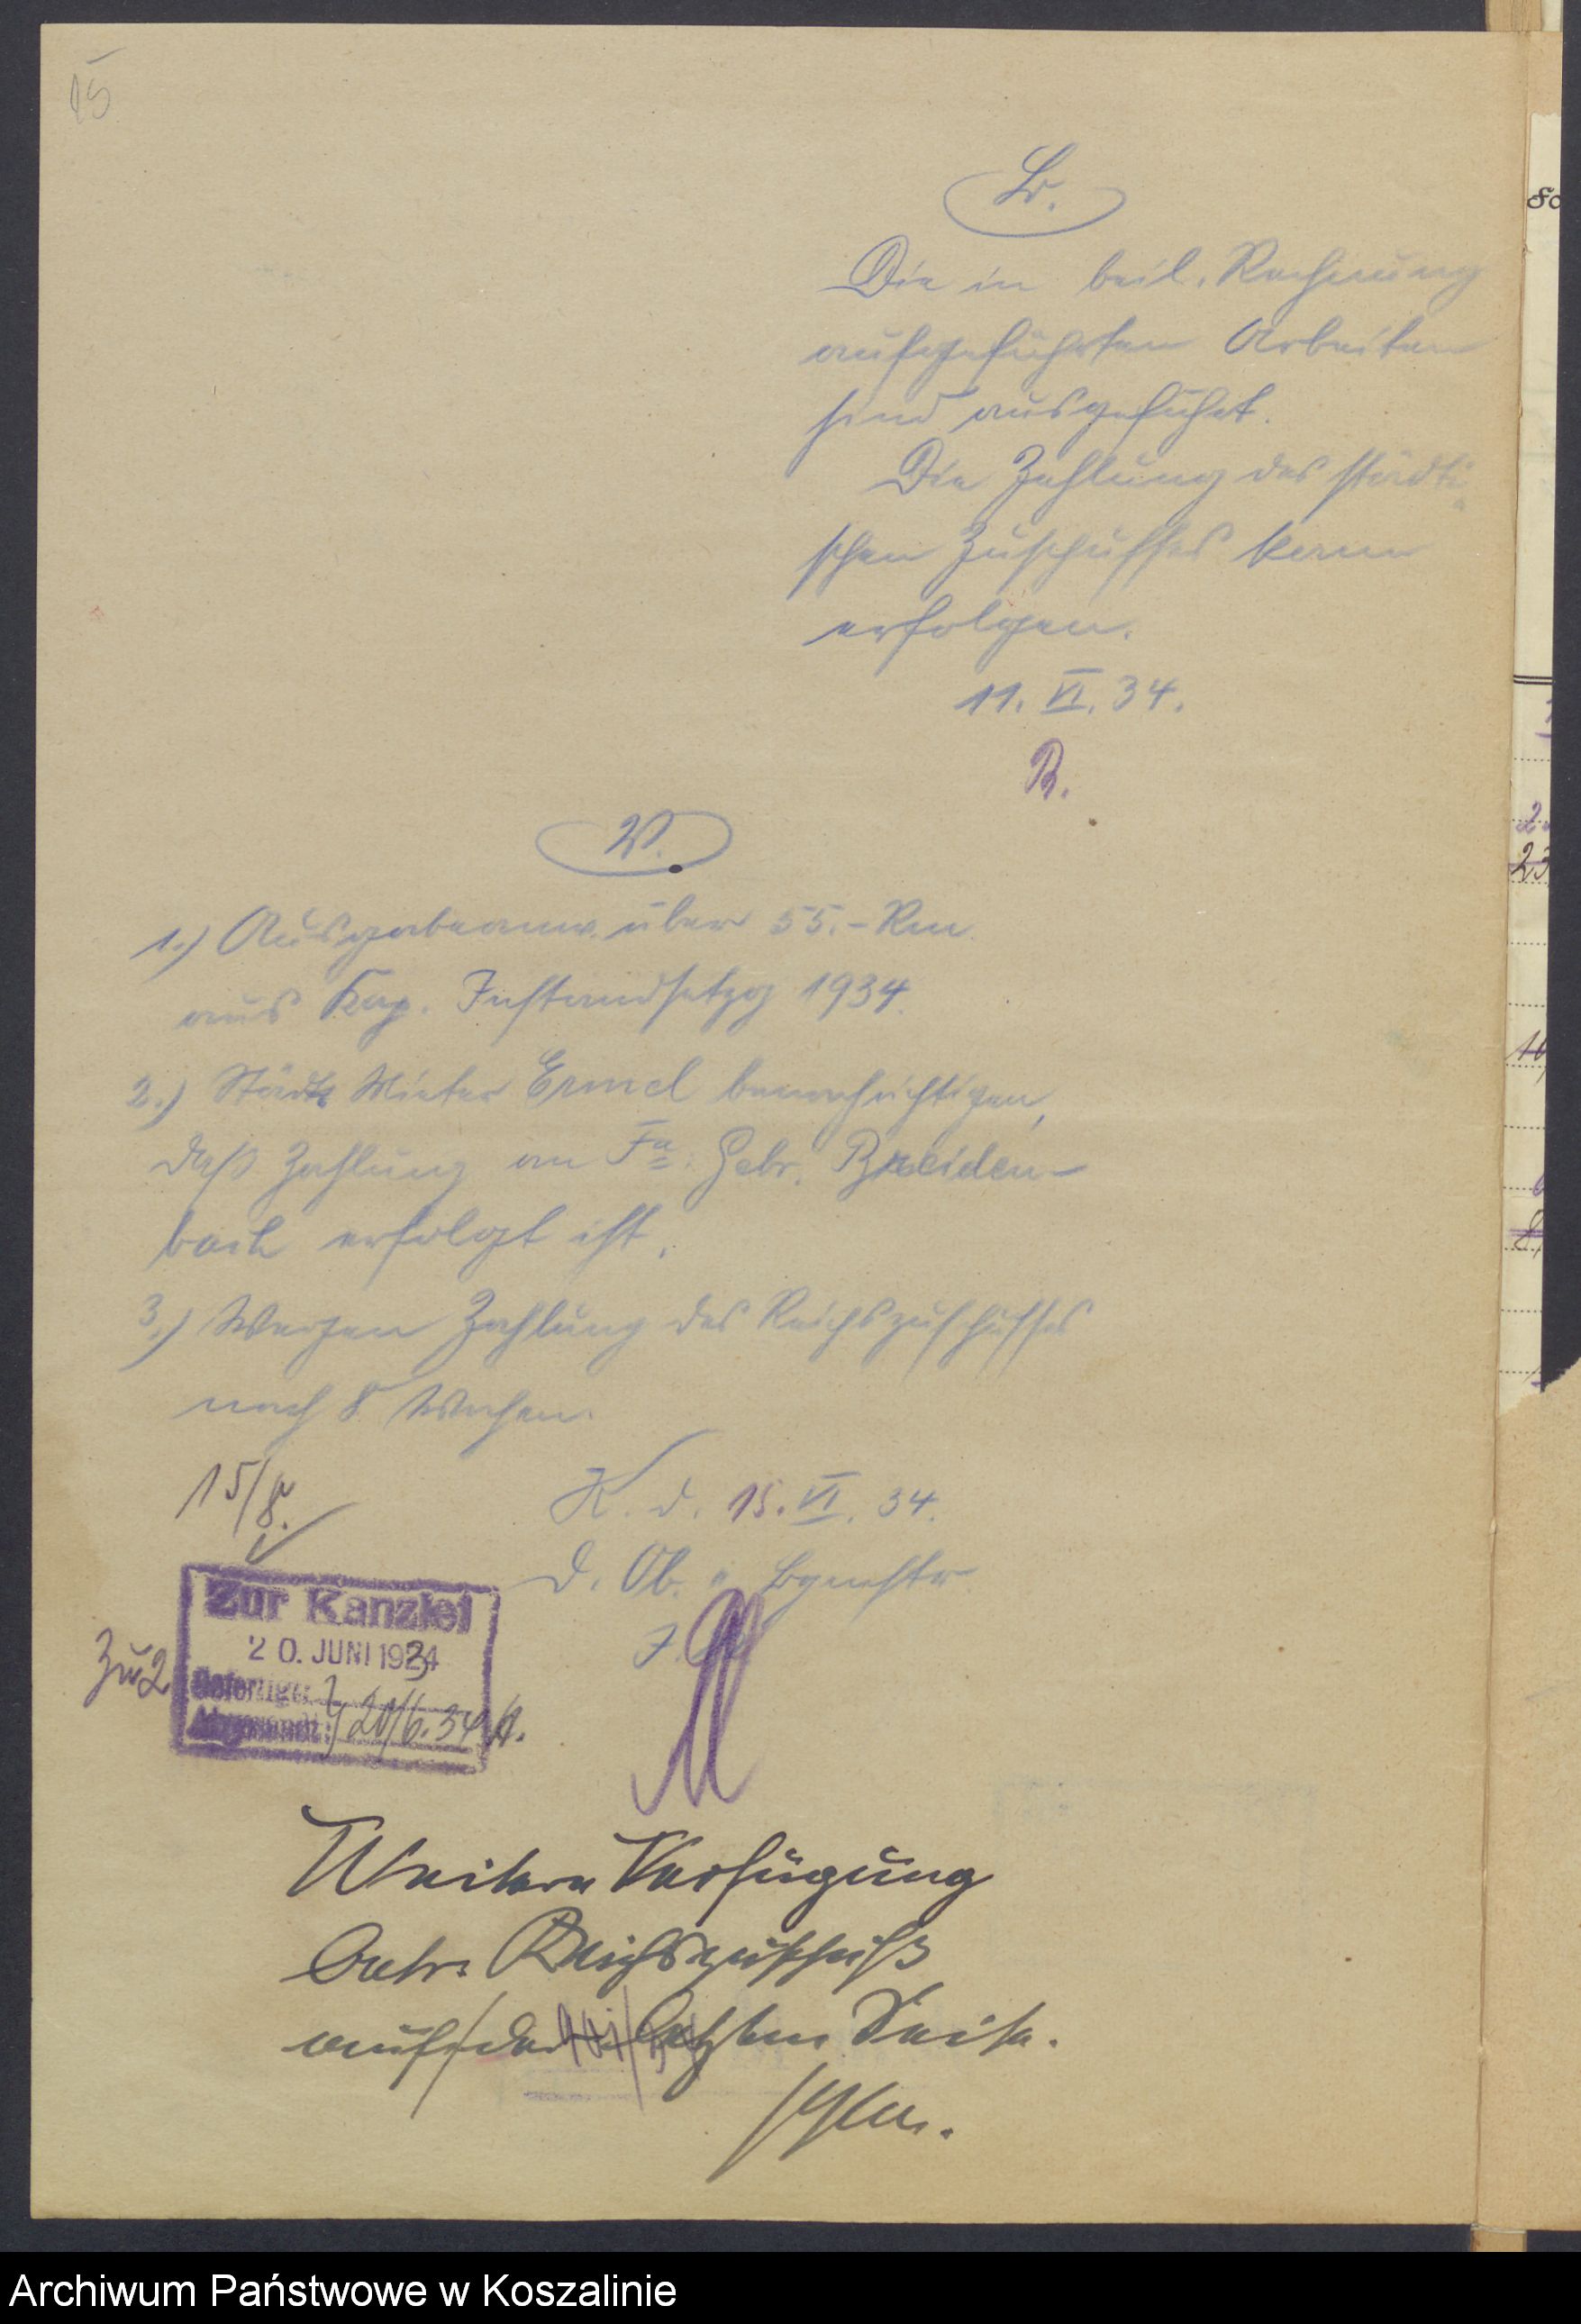 15
Br.
Die in beil. Rechnung
aufgeführten Arbeiten
sind ausgeführt.
Die Zahlung des städti
schen Zuschusses kann
erfolgen.
11. VI. 34.
B.
W.
1.) Ausgabeanw. über 55.- Rm.
aus Kap. Instandsetzg 1934.
2.) Städt. Mieter Ermel benachrichtigen,
daß Zahlung an Fa. Gebr. Breiden-
bach erfolgt ist.
3.) Wegen Zahlung des Reichszuschusses
nach 8 Wochen.
15/8.
K. d. 15. VI. 34.
D. Ob. Bgmstr
J.
Zur Kanzlei
20. JUNI 1934
Zu 2
Gefertigt:
Abgesandt: 20/6. 34
Weitere Verfügung
betr. Reichszuschuß
auf der letzten Seite.
Archiwum Państwowe w Koszalinie